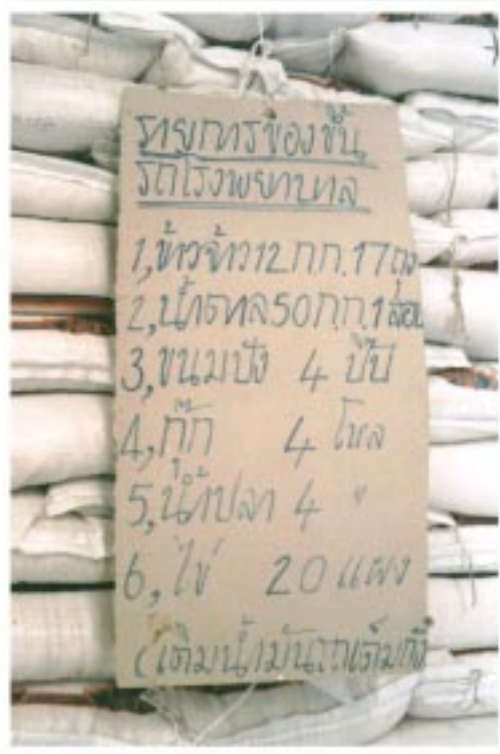 รายการของขึ้น
รถโรงพยาบาล
1, ข้าวจ้าว 12 กก. 17 ถุง
2, น้ำตาล 50 ก.ก. 1 สอบ
3, ขนมปัง 4 ปี๊ป
4, กุ๊ก 4 โหล
5, น้ำปลา 4 "
6, ไข่ 20 แผง
(เติมน้ำมันรถเต็มถัง